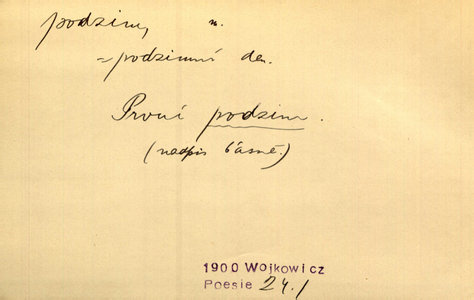 podzim, n.
= podzimní den.
První podzim.
(nadpis básně.)
1900 Wojkowicz
Poesie 24./